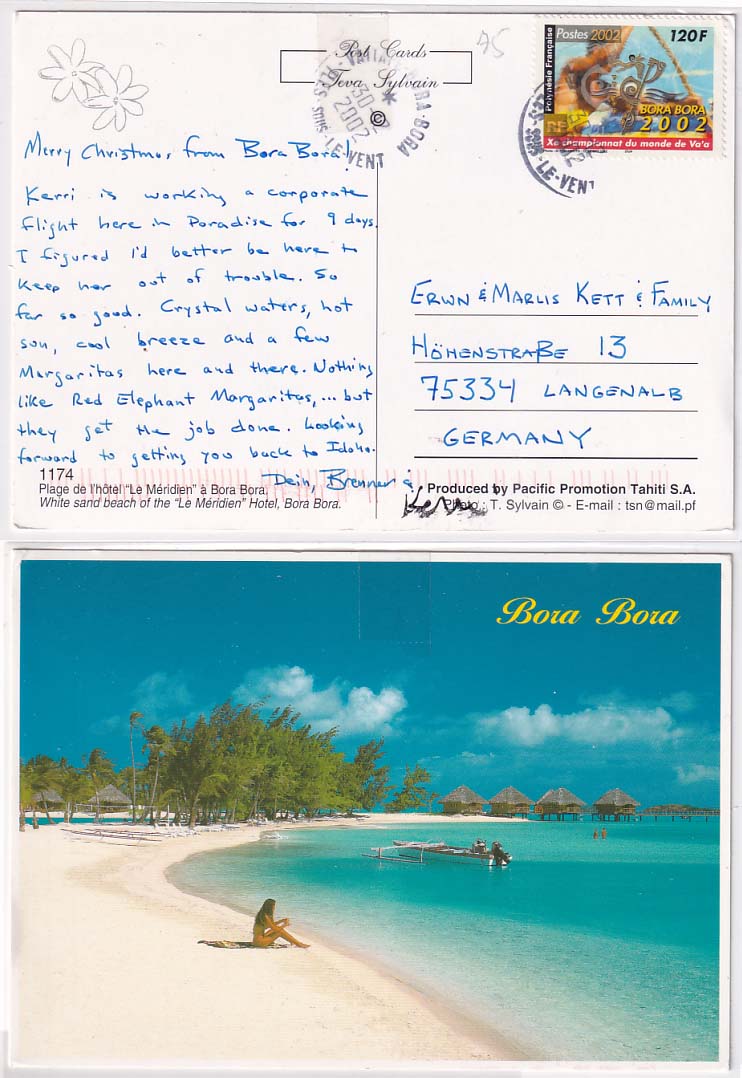 Post Cards
Teva Sylvain
©
75
BORA-BORA
2002
ILES-SOUS-LE-VENT
Polynésie Française
Postes 2002
120F
RF
BORA BORA
2002
Xe championnat du monde de Va'a
SOUS-LE-VENT
Merry Christmas from Bora Bora!
Kerri is working a corporate
flight here in Paradise for 9 days.
I figured I'd better be here to
keep her out of trouble. So
far so good. Crystal waters, hot
sun, cool breeze and a few
Margaritas here and there. Nothing
like Red Elephant Margaritas,... but
they get the job done. Looking
forward to getting you back to Idaho.
Dein, Brenner &
Kerri
ERWN & MARLIS KETT & FAMILY
HÖHENSTRAßE 13
75334 LANGENALB
GERMANY
1174
Plage de l'hôtel "Le Méridien" à Bora Bora.
White sand beach of the "Le Méridien" Hotel, Bora Bora.
Produced by Pacific Promotion Tahiti S.A.
Photo : T. Sylvain © - E-mail : tsn@mail.pf
Bora Bora